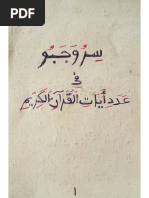 سِرُّ وَجَبُو
فِي
عَدَدِ أَيَاتِ الْقُرْآنِ الْكَرِيْمِ
١